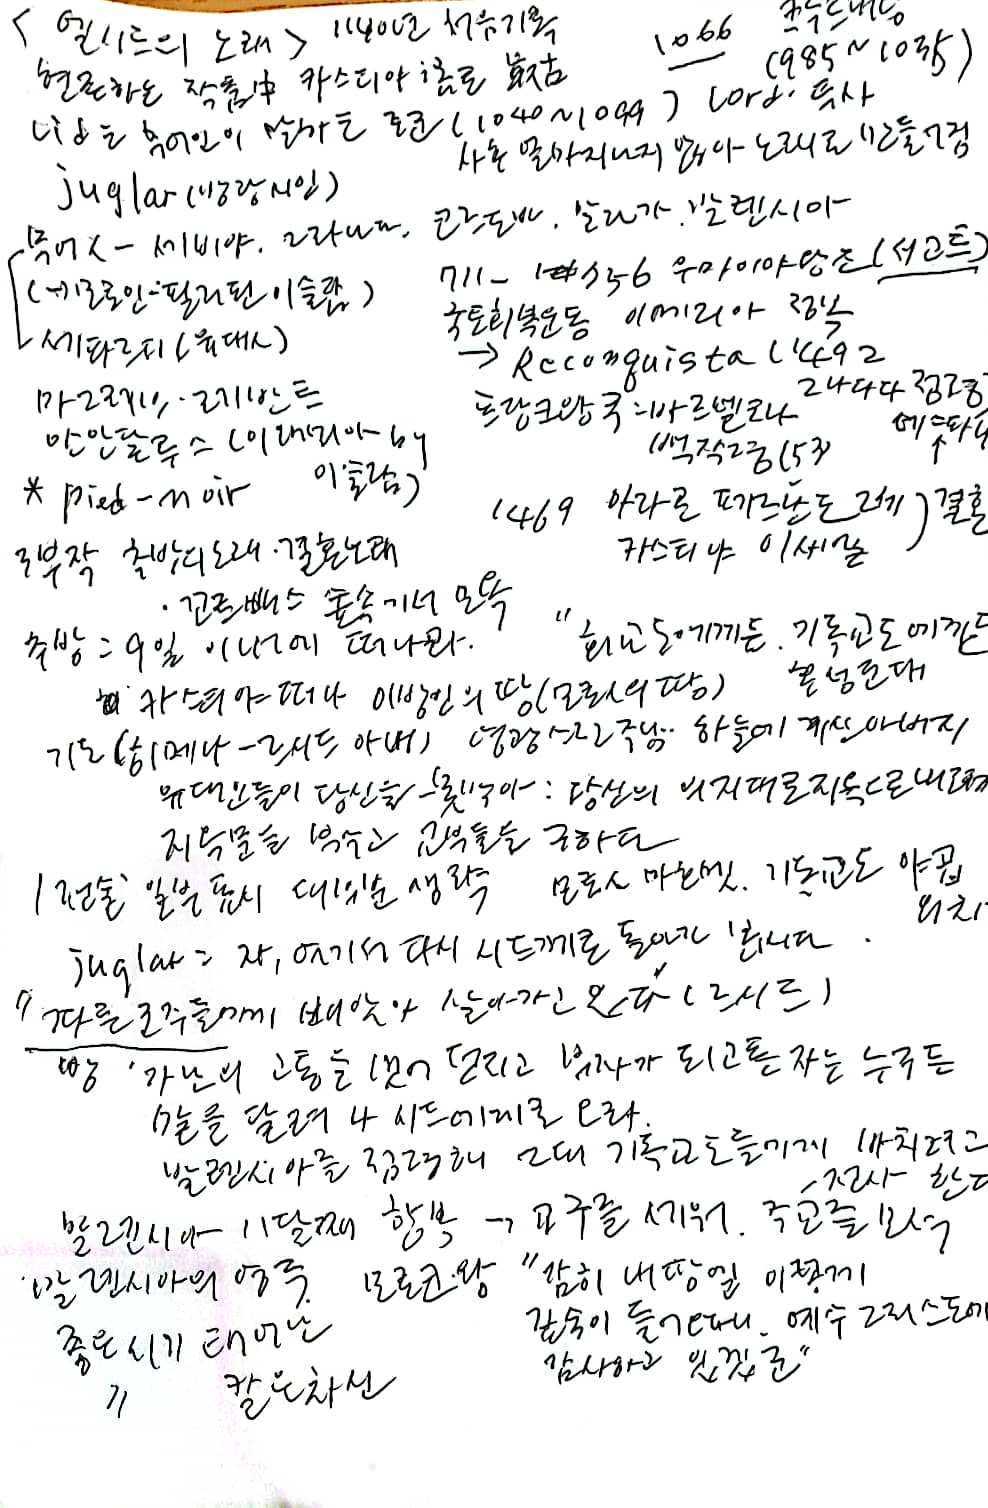 <엘시드의 노래> 1140년 처음기록
1066 크누드대왕
(985~1035)
현존하는 작품中 카스티야어로 最古
시드는 무어인이 날가는 로고 (1040~1099) Lord. 투사
사후 얼마지나지 않아 노래로 만들어짐
juglar (방랑시인)
무어人 - 세비야. 그라나다. 코르도바. 말라가. 발렌시아
(모로인=필리핀이슬람)
711- 756 우마이야왕조 (서고트)
세파르디 (유대人)
국토회복운동 이베리아 정복
→ Reconquista 1492
그나다 점령
마그레브. 레반트
프랑크왕국=바르셀로나
백작령(53
안달루스 (이베리아 by
이슬람)
* pied-noir
1469 아라곤 페르난도 2세 ) 결혼
카스티야 이세벨
3부작 추방의노래. 결혼노래
. 꼬르뻬스 숲속에서 모욕
추방 = 9일 이내에 떠나라.
"회교도에게든. 기독교도에게든
카스티야 떠나 이방인의 땅 (모로人의 땅)
기도 (히메나 - 엘시드 아내) 영광스런 주님.. 하늘에 계신 아버지
유대인들이 당신을 못박아: 당신의 의지대로 지옥으로 내려가
지옥문을 부수고 교부들을 구하다
모로人 마호멧. 기독교도 야곱
외치
juglar = 자, 여기서 다시 시드께로 돌아가 봅시다.
"다른 모주들에게 빼앗아 살아가고 있다 (엘시드)
방 '가난의 고통을 벗어 던지고 부자가 되고픈 자는 누구든
말을 달려 나 시드에게로 오라.
발렌시아를 점령해 그대 기독교도들에게 바치려고
한다
발렌시아 11달째 항복 → 교구를 세워. 주교를 모셔
발렌시아의 영주. 모로코왕 "감히 내땅에 이렇게
깊숙이 들어오다니. 예수 그리스도에
감사하고 있겠군"
좋은시기 태어난
〃 칼을 차신